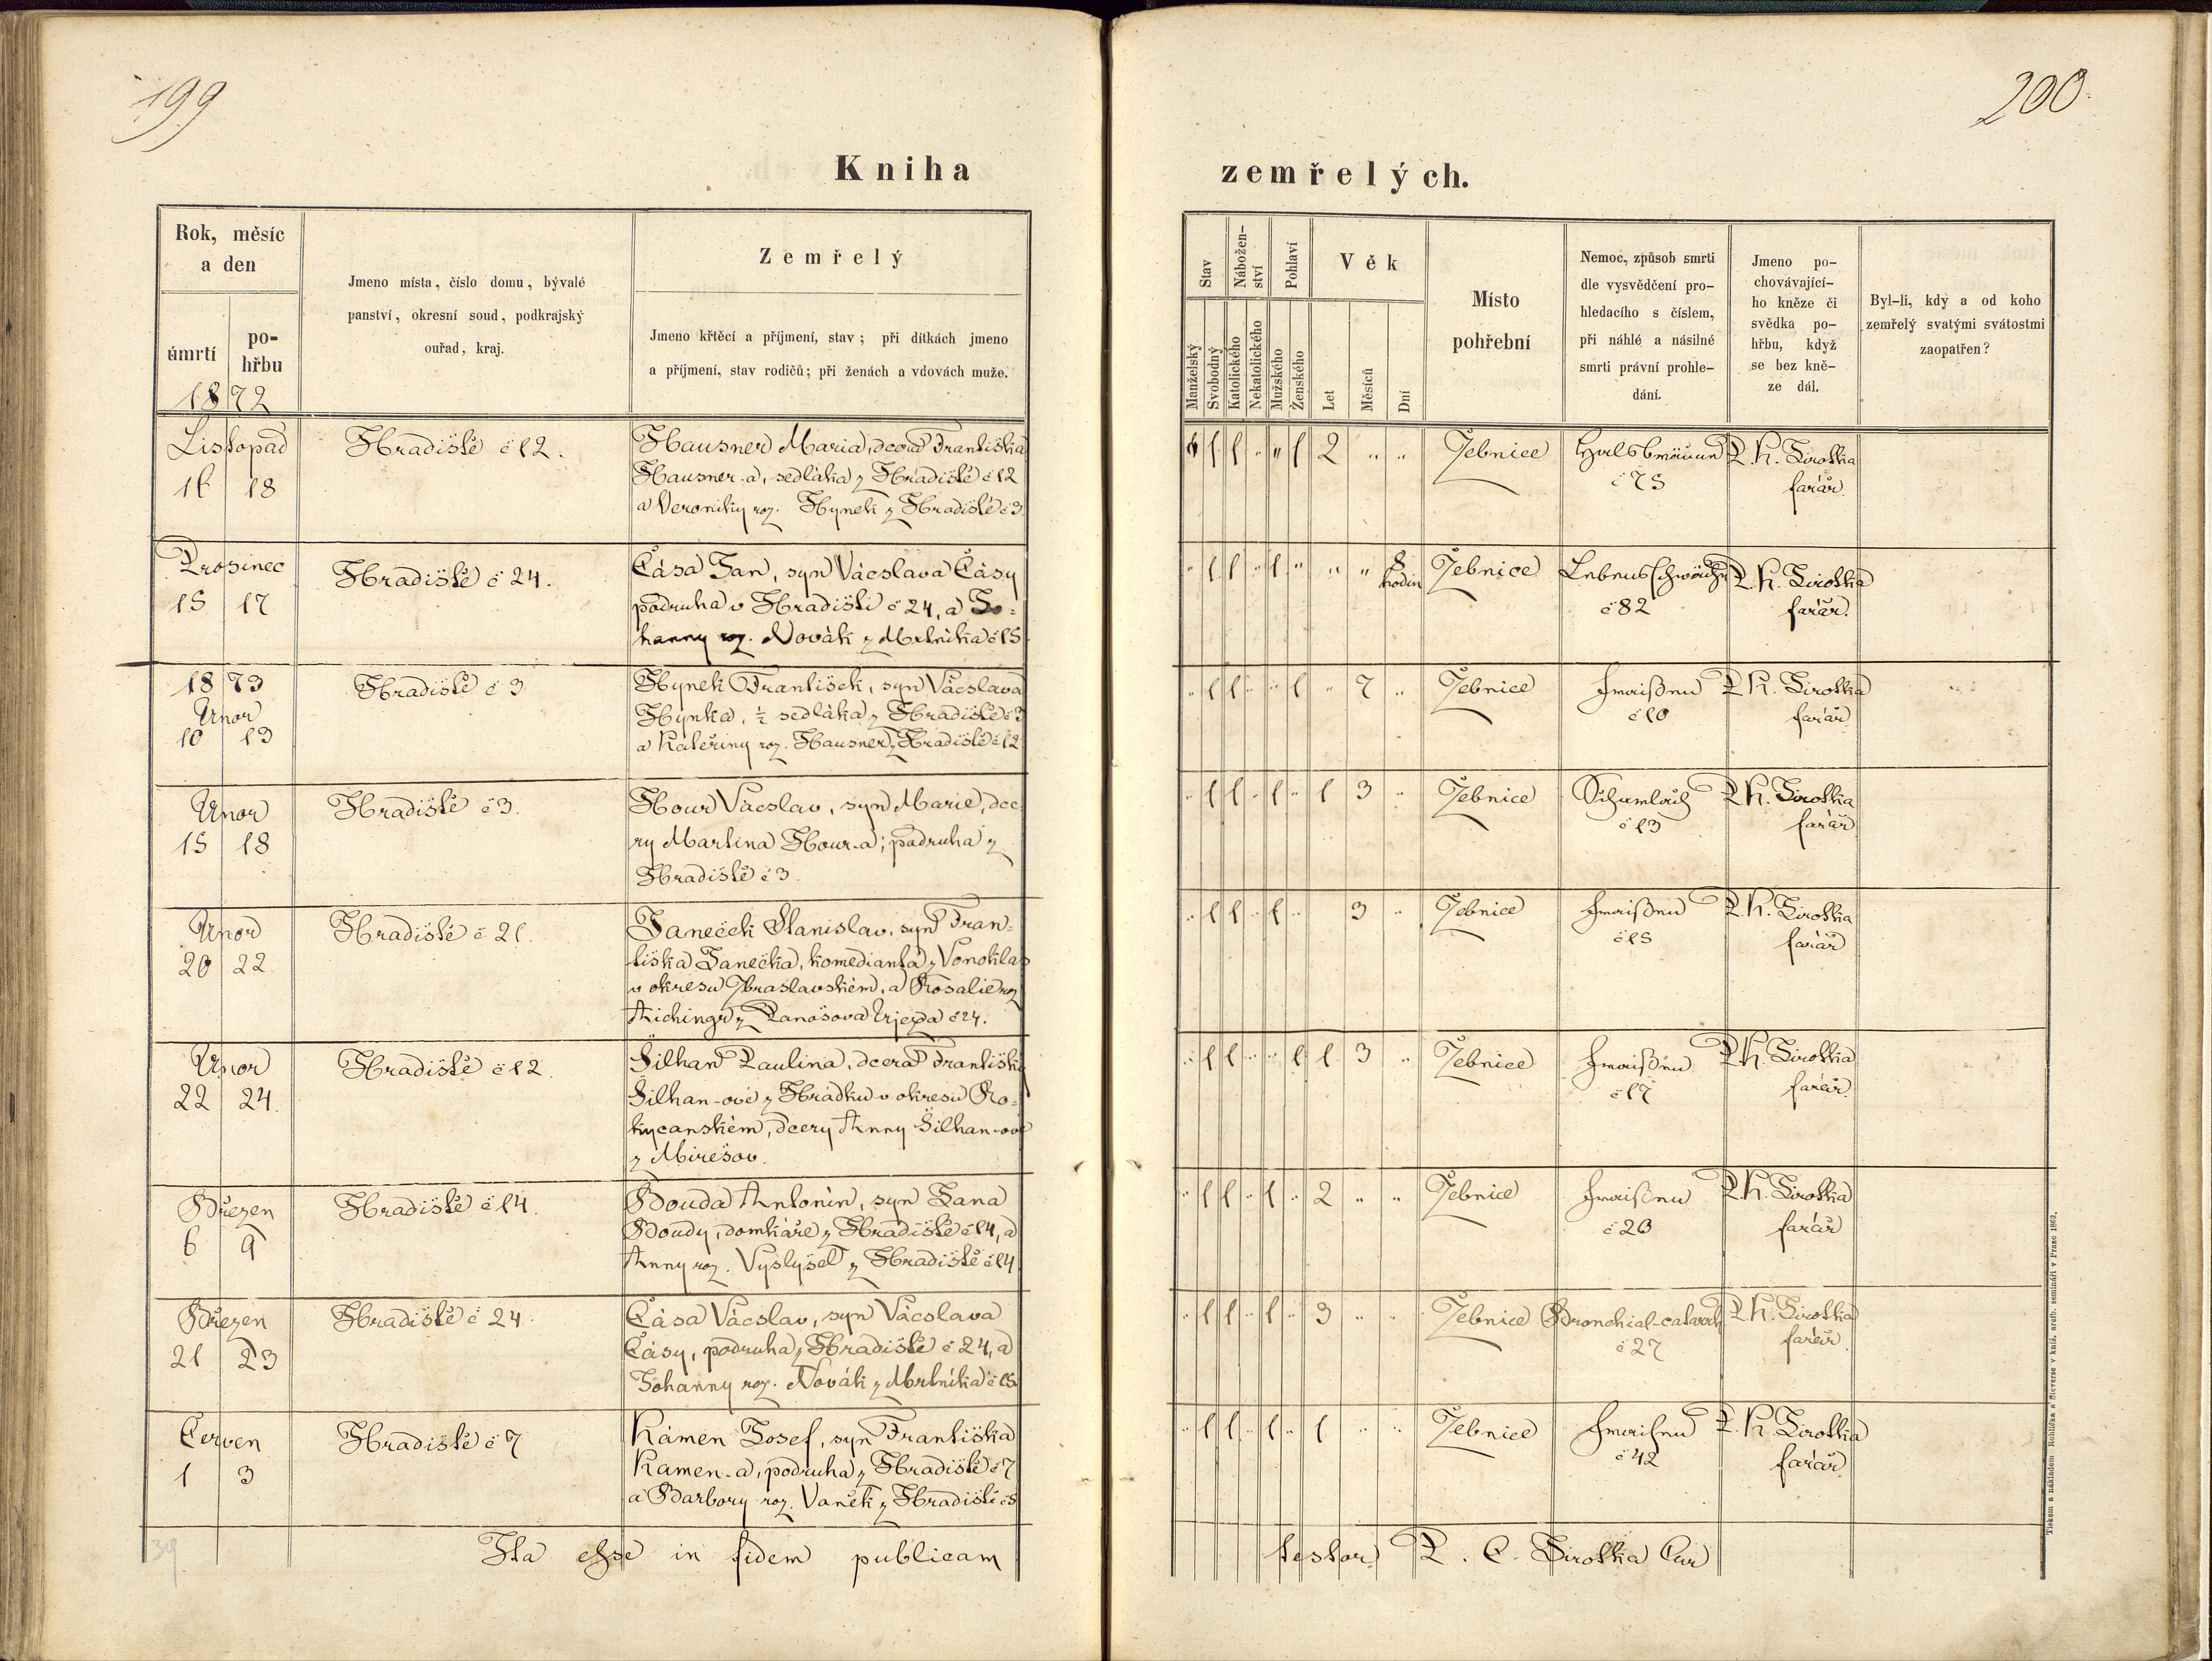 199
200
Kniha
zemřelých.
Rok, měsíc
a den
úmrtí
po-
hřbu
1872
Jmeno místa, číslo domu, bývalé
panství, okresní soud, podkrajský
ouřad, kraj.
Zemřelý
Jmeno křtěcí a příjmení, stav; při dítkách jmeno
a příjmení, stav rodičů; při ženách a vdovách muže.
Stav
Nábožen-
ství
Pohlaví
Věk
Manželský
Svobodný
Katolického
Nekatolického
Mužského
Ženského
Let
Měsíců
Dní
Místo
pohřební
Nemoc, způsob smrti
dle vysvědčení pro-
hledacího s číslem,
při náhlé a násilné
smrti právní prohle-
dání.
Jmeno po-
chovávající-
ho kněze či
svědka po-
hřbu, když
se bez kně-
ze dál.
Byl-li, kdy a od koho
zemřelý svatými svátostmi
zaopatřen?
Listopad
16 18
Hradiště č 12.
Hausner Maria, dcera Františka
Hausner-a, sedláka z Hradiště č 12
a Veroniky roz. Hynek z Hradiště č 3
" 1 1 " " 1 2 " " Žebnice Halsbräune P. K. Sirotka
č 75 farář
Prosinec
15 17
Hradiště č 24.
Čása Jan, syn Vácslava Čásy
podruha v Hradišti č 24, a Jo-
hanny roz. Novák z Mrtníka č 15
" 1 1 " 1 " " " 8 Žebnice Lebensschwäche P. K. Sirotka
hodin č 82 farář.
1873
Únor
10 13
Hradiště č 3
Hynek František, syn Vácslava
Hynka, ½ sedláka z Hradiště č 3
a Kateřiny roz. Hausner z Hradiště č 12
" 1 1 " " 1 " 7 " Žebnice Fraisen P. K. Sirotka
č 10 farář
Únor
15 18
Hradiště č 3.
Hour Vácslav, syn Marie, dce
ry Martina Hour-a; podruha z
Hradiště č 3.
" 1 1 " 1 " 1 3 " Žebnice P. K. Sirotka
č 13 farář
Únor
20 22
Hradiště č 21.
Janeček Stanislav, syn Fran-
tiška Janečka, komedianta z Vonoklas
v okresu Zbraslavském, a Rosalie roz
Aichingr z Panošova Újezda č 24.
" 1 1 " 1 " 3 " Žebnice Fraisen P. K. Sirotka
č 15 farář
Únor
22 24.
Hradiště č 12.
Šilhan Paulina, dcera Františky
Šilhan-ové z Hrádku v okresu Ro-
kycanském, dcery Anny Šilhan-ové
z Mirešov.
" 1 1 " " 1 1 3 " Žebnice Fraisen P. K. Sirotka
č 17 farář.
Březen
6 9
Hradiště č 14.
Bouda Antonín, syn Jana
Boudy, domkáře z Hradiště č 14, a
Anny roz. Vyslyšel z Hradiště č 14
" 1 1 " 1 " 2 " " Žebnice Fraisen P. K. Sirotka
č 20 farář
Březen
21 23
Hradiště č 24.
Čása Vácslav, syn Vácslava
Čásy, podruha z Hradiště č 24, a
Johanny roz. Novák z Mrtníka č 15
" 1 1 " 1 " 3 " " Žebnice Bronchial-catarrh P. K. Sirotka
č 27 farář.
Červen
1 3
Hradiště č 7
Kámen Josef, syn Františka
Kamen-a, podruha z Hradiště č 7
a Barbory roz. Vaněk z Hradiště č 5
" 1 1 " 1 " 1 " " Žebnice Fraisen P. K. Sirotka
č 42 farář
Ita esse in fidem publicam testor P. C. Sirotka Cur
39
Tiskem a nákladem Rohlíčka a Sieverse v kníž. arcib. semináři v Praze 1862.